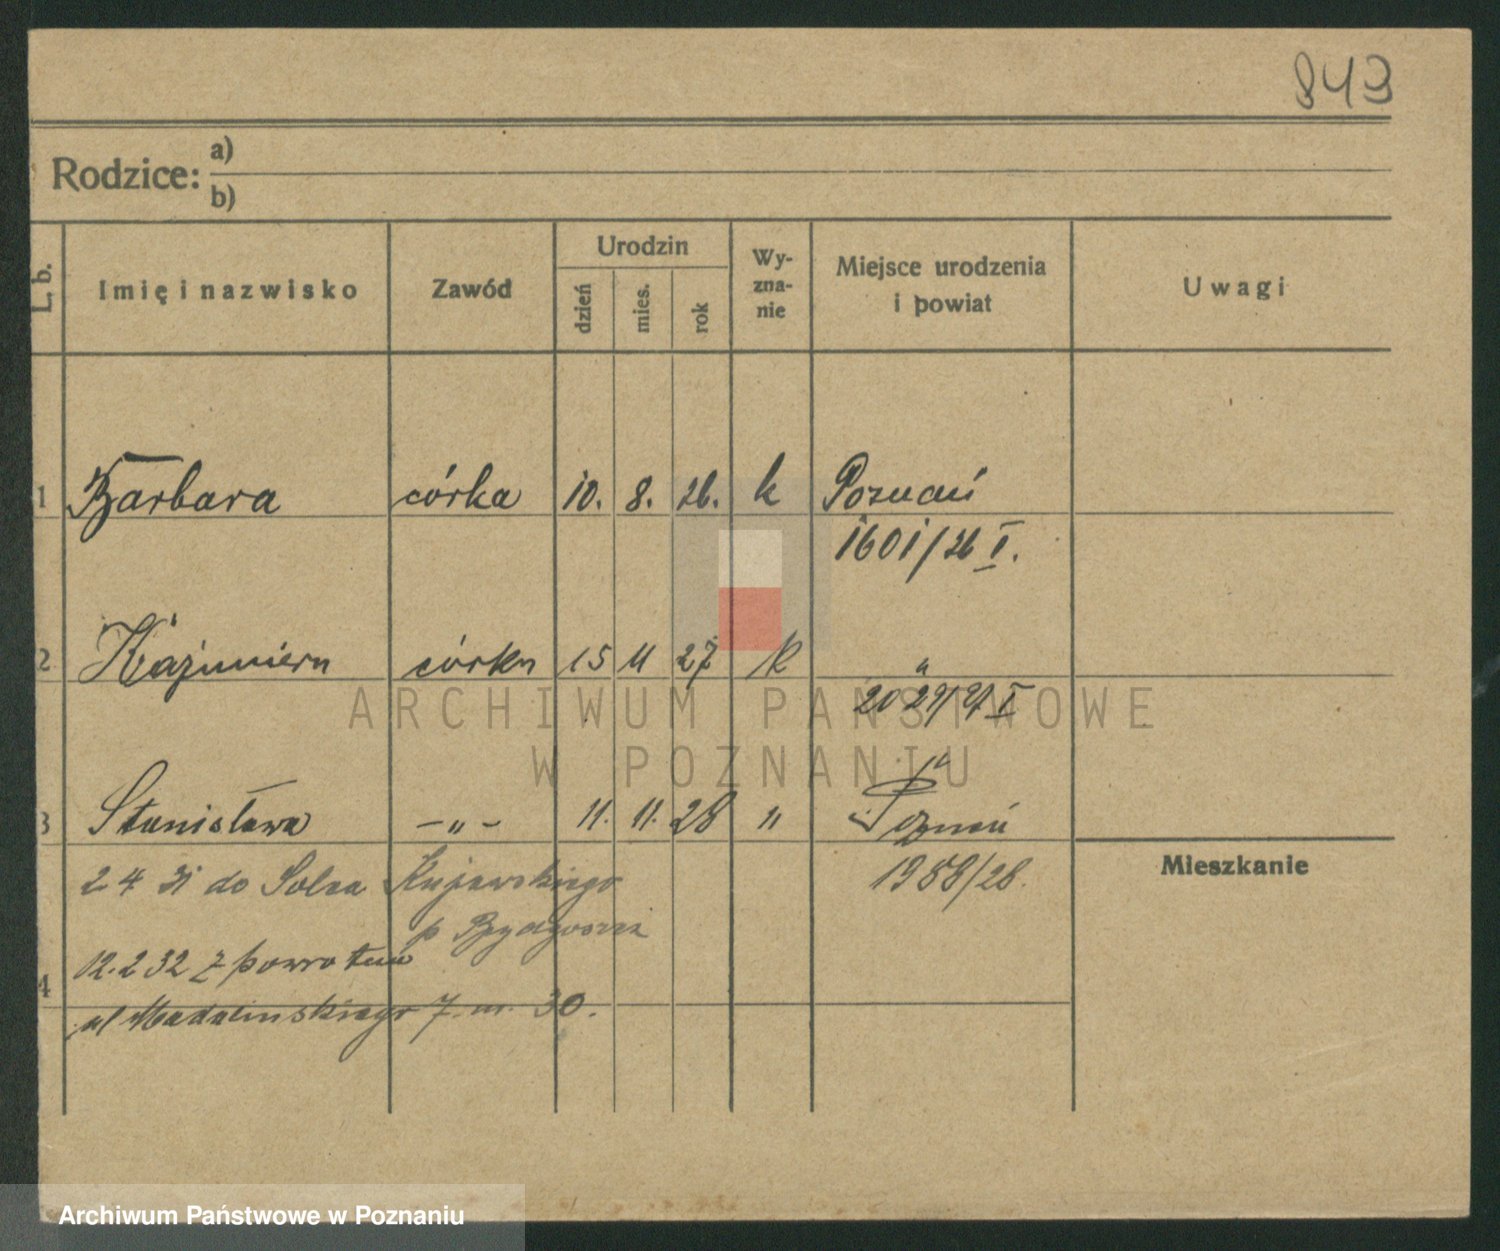 843
Rodzice: a)
b)
L. b. Imię i nazwisko Zawód Urodzin dzień mies. rok Wy-zna-nie Miejsce urodzenia i powiat Uwagi
1 Barbara córka 10. 8. 26. k Poznań
1601/26 I.
2 Kazimiera córka 15 11 27 k "
2029/27 I
ARCHIWUM PAŃSTWOWE
W POZNANIU
3 Stanisława -"- 11. 11. 28 " Poznań
1988/28.
Mieszkanie
2 4 31 do Solca Kujawskiego
p Bydgoszcz
12.2 32 z powrotem
4
ul Madalinskiego 7. m. 30.
Archiwum Państwowe w Poznaniu